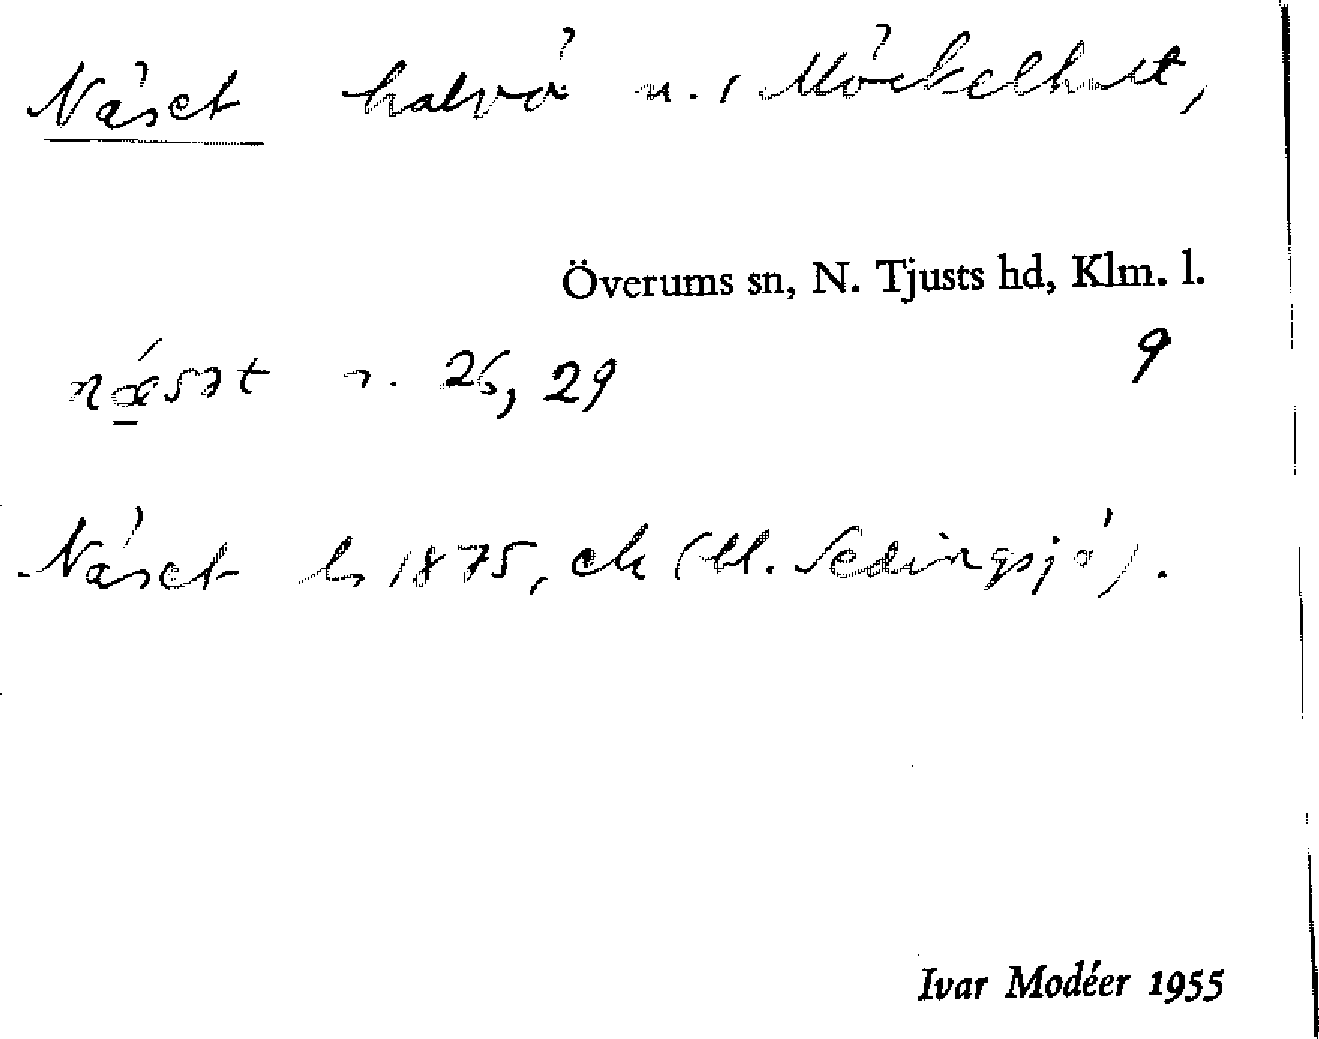 Näset halvö u. Möckelhult,
Överums sn, N. Tjusts hd, Klm. l.
9
næsət r. 26, 29
Näset ls 1875, ek (bl. Sedingsjö).
Ivar Modéer 1955